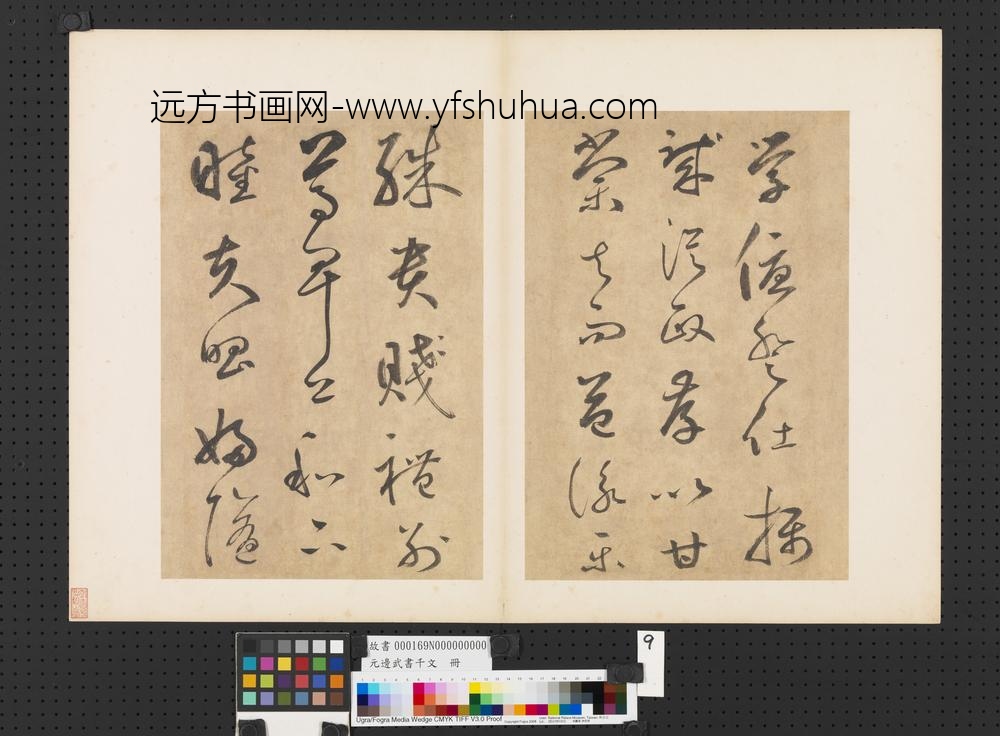 远方书画网-www.yfshuhua.com
學優登仕攝
職從政存以甘
棠去而益詠樂
殊貴賤禮別
尊卑上和下
睦夫唱婦隨
故書 000169N000000000
元邊武書千文 冊
9
Ugra/Fogra Media Wedge CMYK TIFF V3.0 Proof